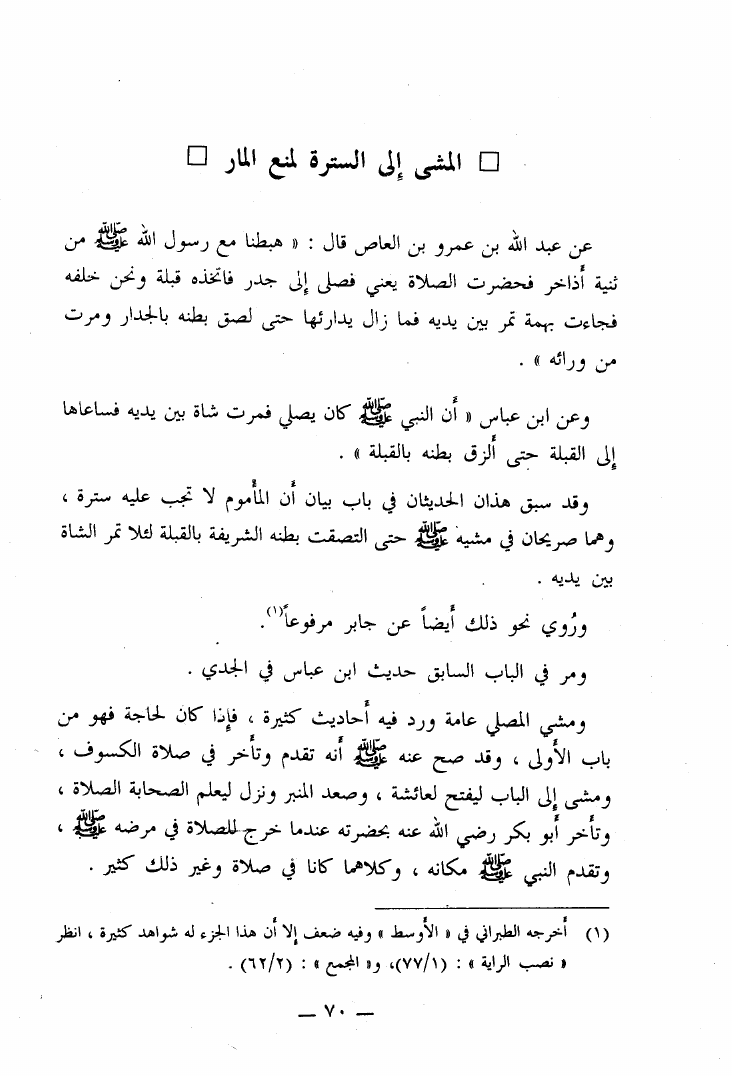 □ المشى إلى السترة لمنع المار □
عن عبد الله بن عمرو بن العاص قال : « هبطنا مع رسول الله ﷺ من
ثنية أذاخر فحضرت الصلاة يعني فصلى إلى جدر فاتخذه قبلة ونحن خلفه
فجاءت بهمة تمر بين يديه فما زال يدارئها حتى لصق بطنه بالجدار ومرت
من ورائه » .
وعن ابن عباس « أن النبي ﷺ كان يصلي فمرت شاة بين يديه فساعاها
إلى القبلة حتى ألزق بطنه بالقبلة » .
وقد سبق هذان الحديثان في باب بيان أن المأموم لا تجب عليه سترة ،
وهما صريحان في مشيه ﷺ حتى التصقت بطنه الشريفة بالقبلة لئلا تمر الشاة
بين يديه .
ورُوي نحو ذلك أيضاً عن جابر مرفوعاً(١).
ومر في الباب السابق حديث ابن عباس في الجدي .
ومشي المصلي عامة ورد فيه أحاديث كثيرة ، فإذا كان لحاجة فهو من
باب الأولى ، وقد صح عنه ﷺ أنه تقدم وتأخر في صلاة الكسوف ،
ومشى إلى الباب ليفتح لعائشة ، وصعد المنبر ونزل ليعلم الصحابة الصلاة ،
وتأخر أبو بكر رضي الله عنه بحضرته عندما خرج للصلاة في مرضه ﷺ ،
وتقدم النبي ﷺ مكانه ، وكلاهما كانا في صلاة وغير ذلك كثير .
(١) أخرجه الطبراني في « الأوسط » وفيه ضعف إلا أن هذا الجزء له شواهد كثيرة ، انظر
« نصب الراية » : (٧٧/١)، و« المجمع » : (٦٢/٢) .
— ٧٠ —